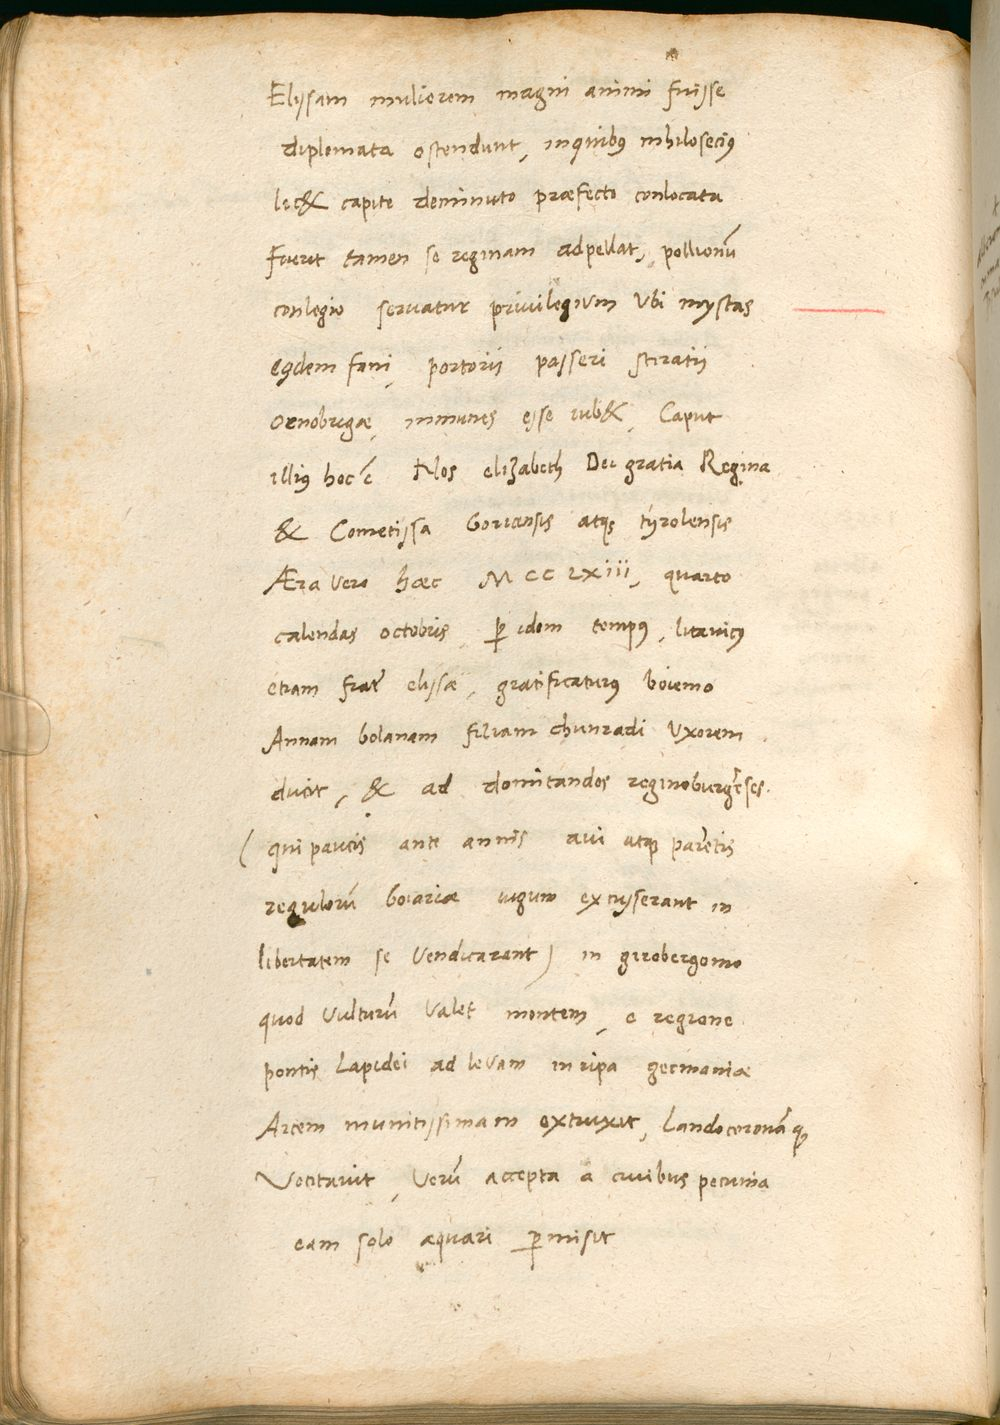 Elysam mulierem magni animi fuisse
diplomata ostendunt, in quibus nihilosecius
lic& capite deminuto præfecto conlocata
fuerit tamen se reginam adpellat, pollionū
conlegio servatur privilegium Ubi mystas
eisdem fani, portorii passeri stiratii
Oenobrigæ, inmunes esse iub&, Caput
illius hoc ē Nos elizabeth Dei gratia Regina
& Cometissa Goriensis atque tyrolensis
Æra vero hæc MCCLXIII, quarto
calendas octobris, per idem tempus, litavicus
etiam frater elysæ, gratificaturus boiemo
Annam bolanam filiam chunradi Uxorem
ducit, & ad domitandos reginoburgēses.
(qui paucis ante annis avi atque parētis
regulorū boiariæ iugum excusserant in
libertatem se Vendicarant) in girobergomo
quod Vulturū Valet montem, e regione
pontis Lapidei ad levam in ripa germaniæ
Arcem munitissimam extruxit, Landoceronāque
Vocitavit, Verū accepta a civibus pecunia
eam solo æquari permisit